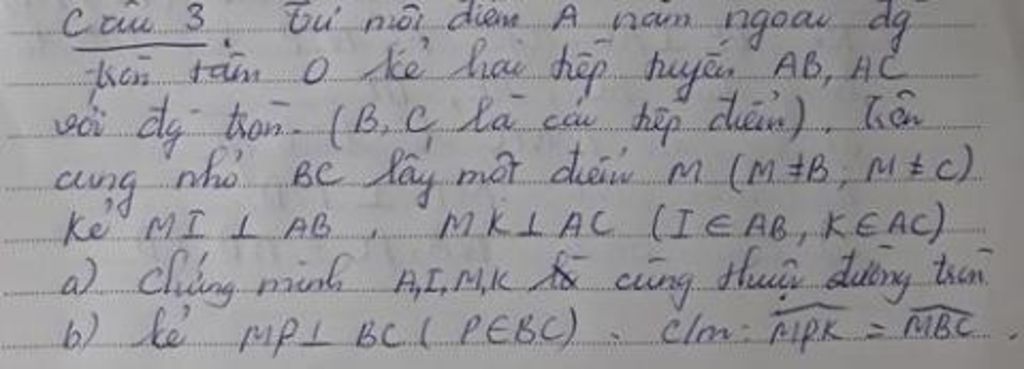 Câu 3. Từ một điểm A nằm ngoài đg
tròn tâm O kẻ hai tiếp tuyến AB, AC
với đg tròn. (B, C là các tiếp điểm). Trên
cung nhỏ BC lấy một điểm M (M ≠ B, M ≠ C)
Kẻ MI ⊥ AB, MK ⊥ AC (I ∈ AB, K ∈ AC)
a) Chứng minh A, I, M, K cùng thuộc đường tròn
b) kẻ MP ⊥ BC (P ∈ BC). C/m: \widehat{MPK} = \widehat{MBC}.